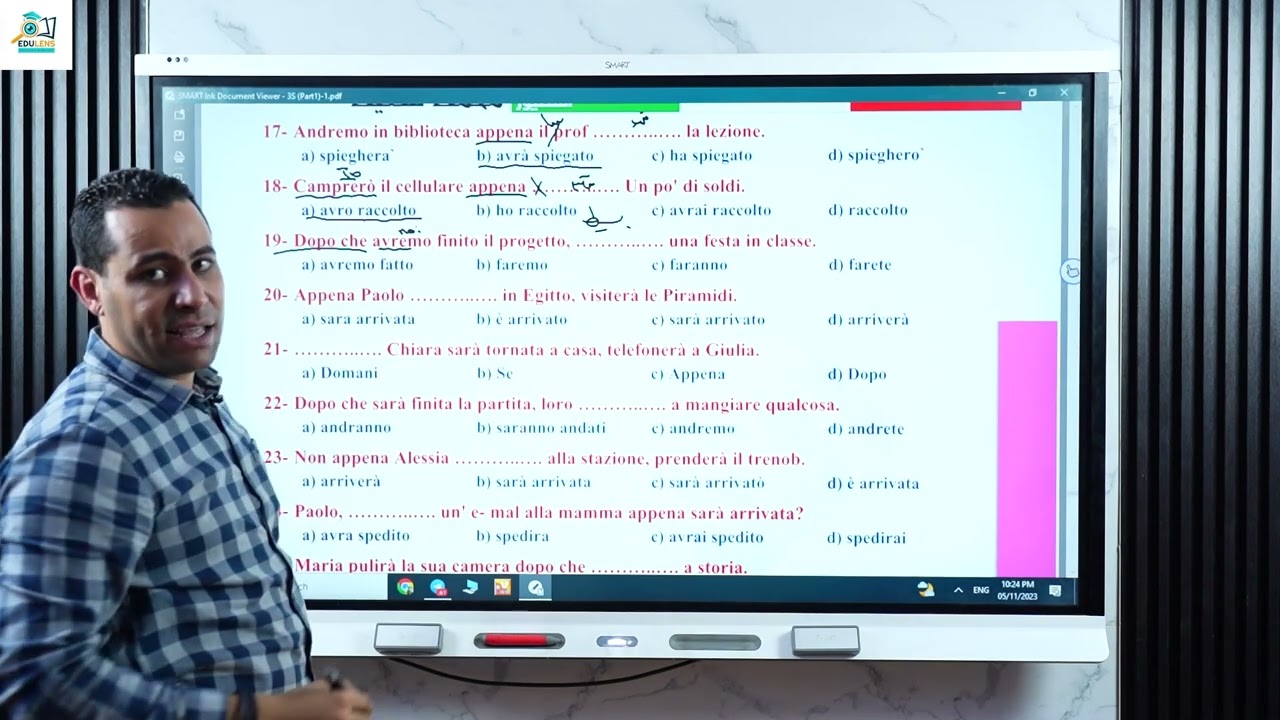 EDULENS
SMART
SMART Ink Document Viewer - 3S (Part1)-1.pdf
17- Andremo in biblioteca appena il prof ………..…. la lezione.
a) spieghera` b) avrà spiegato c) ha spiegato d) spieghero`
18- Camprerò il cellulare appena ………..…. Un po' di soldi.
a) avro raccolto b) ho raccolto c) avrai raccolto d) raccolto
19- Dopo che avremo finito il progetto, ………..…. una festa in classe.
a) avremo fatto b) faremo c) faranno d) farete
20- Appena Paolo ………..…. in Egitto, visiterà le Piramidi.
a) sara arrivata b) è arrivato c) sarà arrivato d) arriverà
21- ………..…. Chiara sarà tornata a casa, telefonerà a Giulia.
a) Domani b) Se c) Appena d) Dopo
22- Dopo che sarà finita la partita, loro ………..…. a mangiare qualcosa.
a) andranno b) saranno andati c) andremo d) andrete
23- Non appena Alessia ………..…. alla stazione, prenderà il trenob.
a) arriverà b) sarà arrivata c) sarà arrivatò d) è arrivata
- Paolo, ………..…. un' e- mal alla mamma appena sarà arrivata?
a) avra spedito b) spedira c) avrai spedito d) spedirai
Maria pulirà la sua camera dopo che ………..…. a storia.
ENG
10:24 PM
05/11/2023